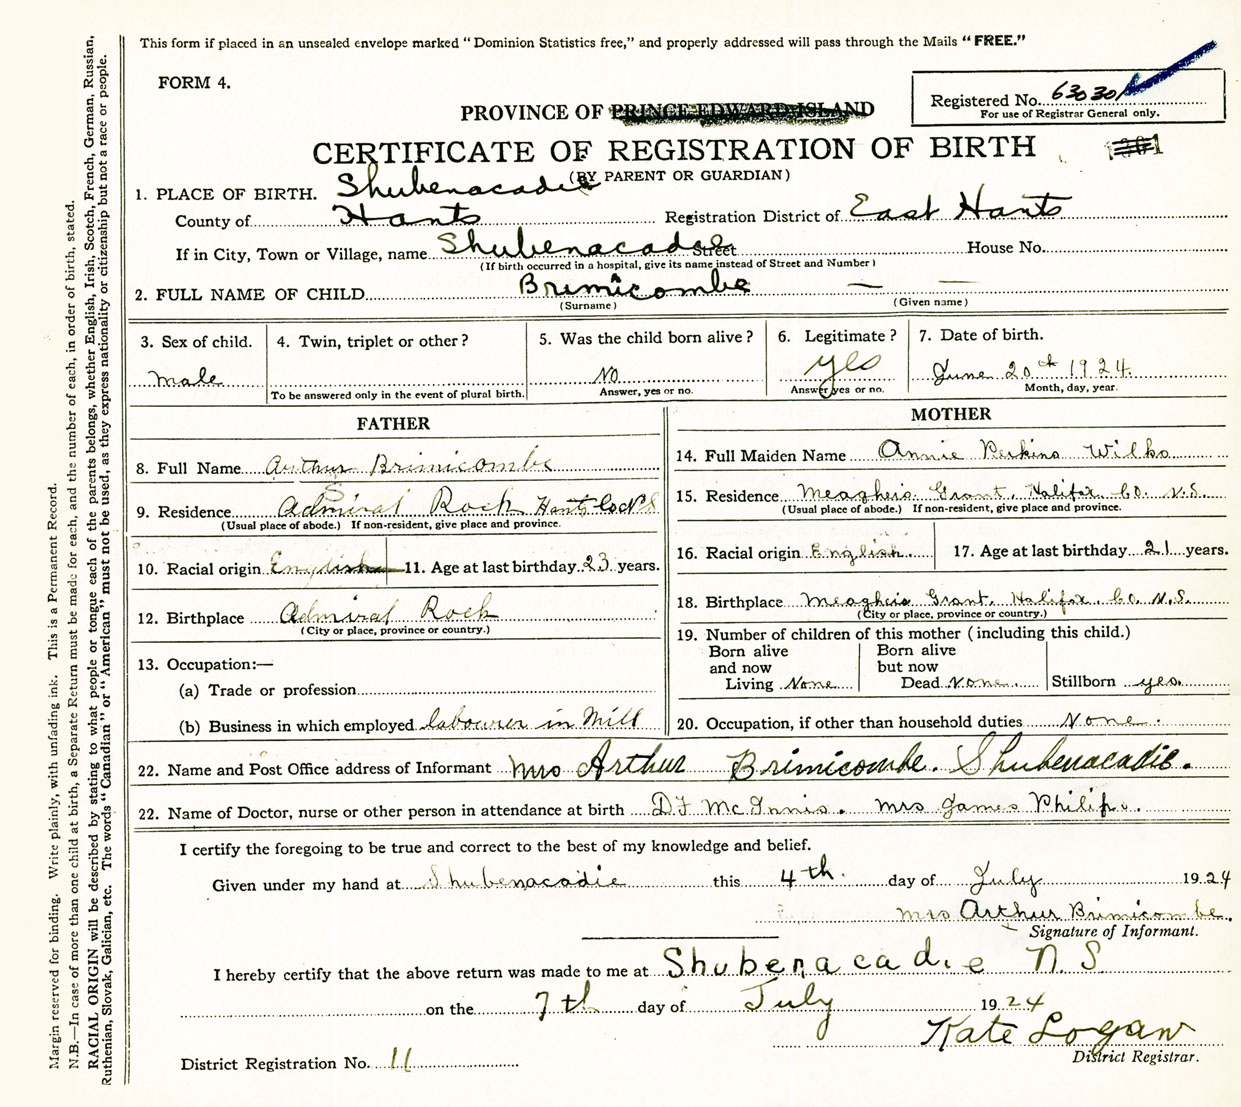 This form if placed in an unsealed envelope marked "Dominion Statistics free," and properly addressed will pass through the Mails "FREE."
FORM 4.
Registered No. 63030
For use of Registrar General only.
PROVINCE OF PRINCE EDWARD ISLAND
CERTIFICATE OF REGISTRATION OF BIRTH
(BY PARENT OR GUARDIAN)
1. PLACE OF BIRTH. Shubenacadie
County of Hants Registration District of East Hants
If in City, Town or Village, name Shubenacadie Street House No.
(If birth occurred in a hospital, give its name instead of Street and Number)
2. FULL NAME OF CHILD Brimicombe — —
(Surname) (Given name)
3. Sex of child. 4. Twin, triplet or other? 5. Was the child born alive? 6. Legitimate? 7. Date of birth.
male No yes June 20th 1924.
To be answered only in the event of plural birth. Answer, yes or no. Answer yes or no. Month, day, year.
FATHER
8. Full Name Arthur Brimicombe
9. Residence Admiral Rock Hants Co N S
(Usual place of abode.) If non-resident, give place and province.
10. Racial origin English 11. Age at last birthday 23 years.
12. Birthplace Admiral Rock
(City or place, province or country.)
13. Occupation:—
(a) Trade or profession
(b) Business in which employed labourer in Mill
MOTHER
14. Full Maiden Name Annie Perkins Wilks
15. Residence Meaghers Grant, Halifax Co. N.S.
(Usual place of abode.) If non-resident, give place and province.
16. Racial origin English. 17. Age at last birthday 21 years.
18. Birthplace Meaghers Grant, Halifax Co. N.S.
(City or place, province or country.)
19. Number of children of this mother (including this child.)
Born alive and now Living None Born alive but now Dead None. Stillborn yes.
20. Occupation, if other than household duties None.
22. Name and Post Office address of Informant Mrs Arthur Brimicombe. Shubenacadie.
22. Name of Doctor, nurse or other person in attendance at birth McInnis. Mrs James Philips.
I certify the foregoing to be true and correct to the best of my knowledge and belief.
Given under my hand at Shubenacadie this 4th. day of July 1924
Mrs Arthur Brimicombe.
Signature of Informant.
I hereby certify that the above return was made to me at Shubenacadie N.S
on the 7th day of July 1924
Kate Logan
District Registrar.
District Registration No. 11
Margin reserved for binding. Write plainly, with unfading ink. This is a Permanent Record.
N.B.—In case of more than one child at birth, a Separate Return must be made for each, and the number of each, in order of birth, stated.
RACIAL ORIGIN will be described by stating to what people or tongue each of the parents belongs, whether English, Irish, Scotch, French, German, Russian,
Ruthenian, Slovak, Galician, etc. The words "Canadian" or "American" must not be used, as they express nationality or citizenship but not a race or people.